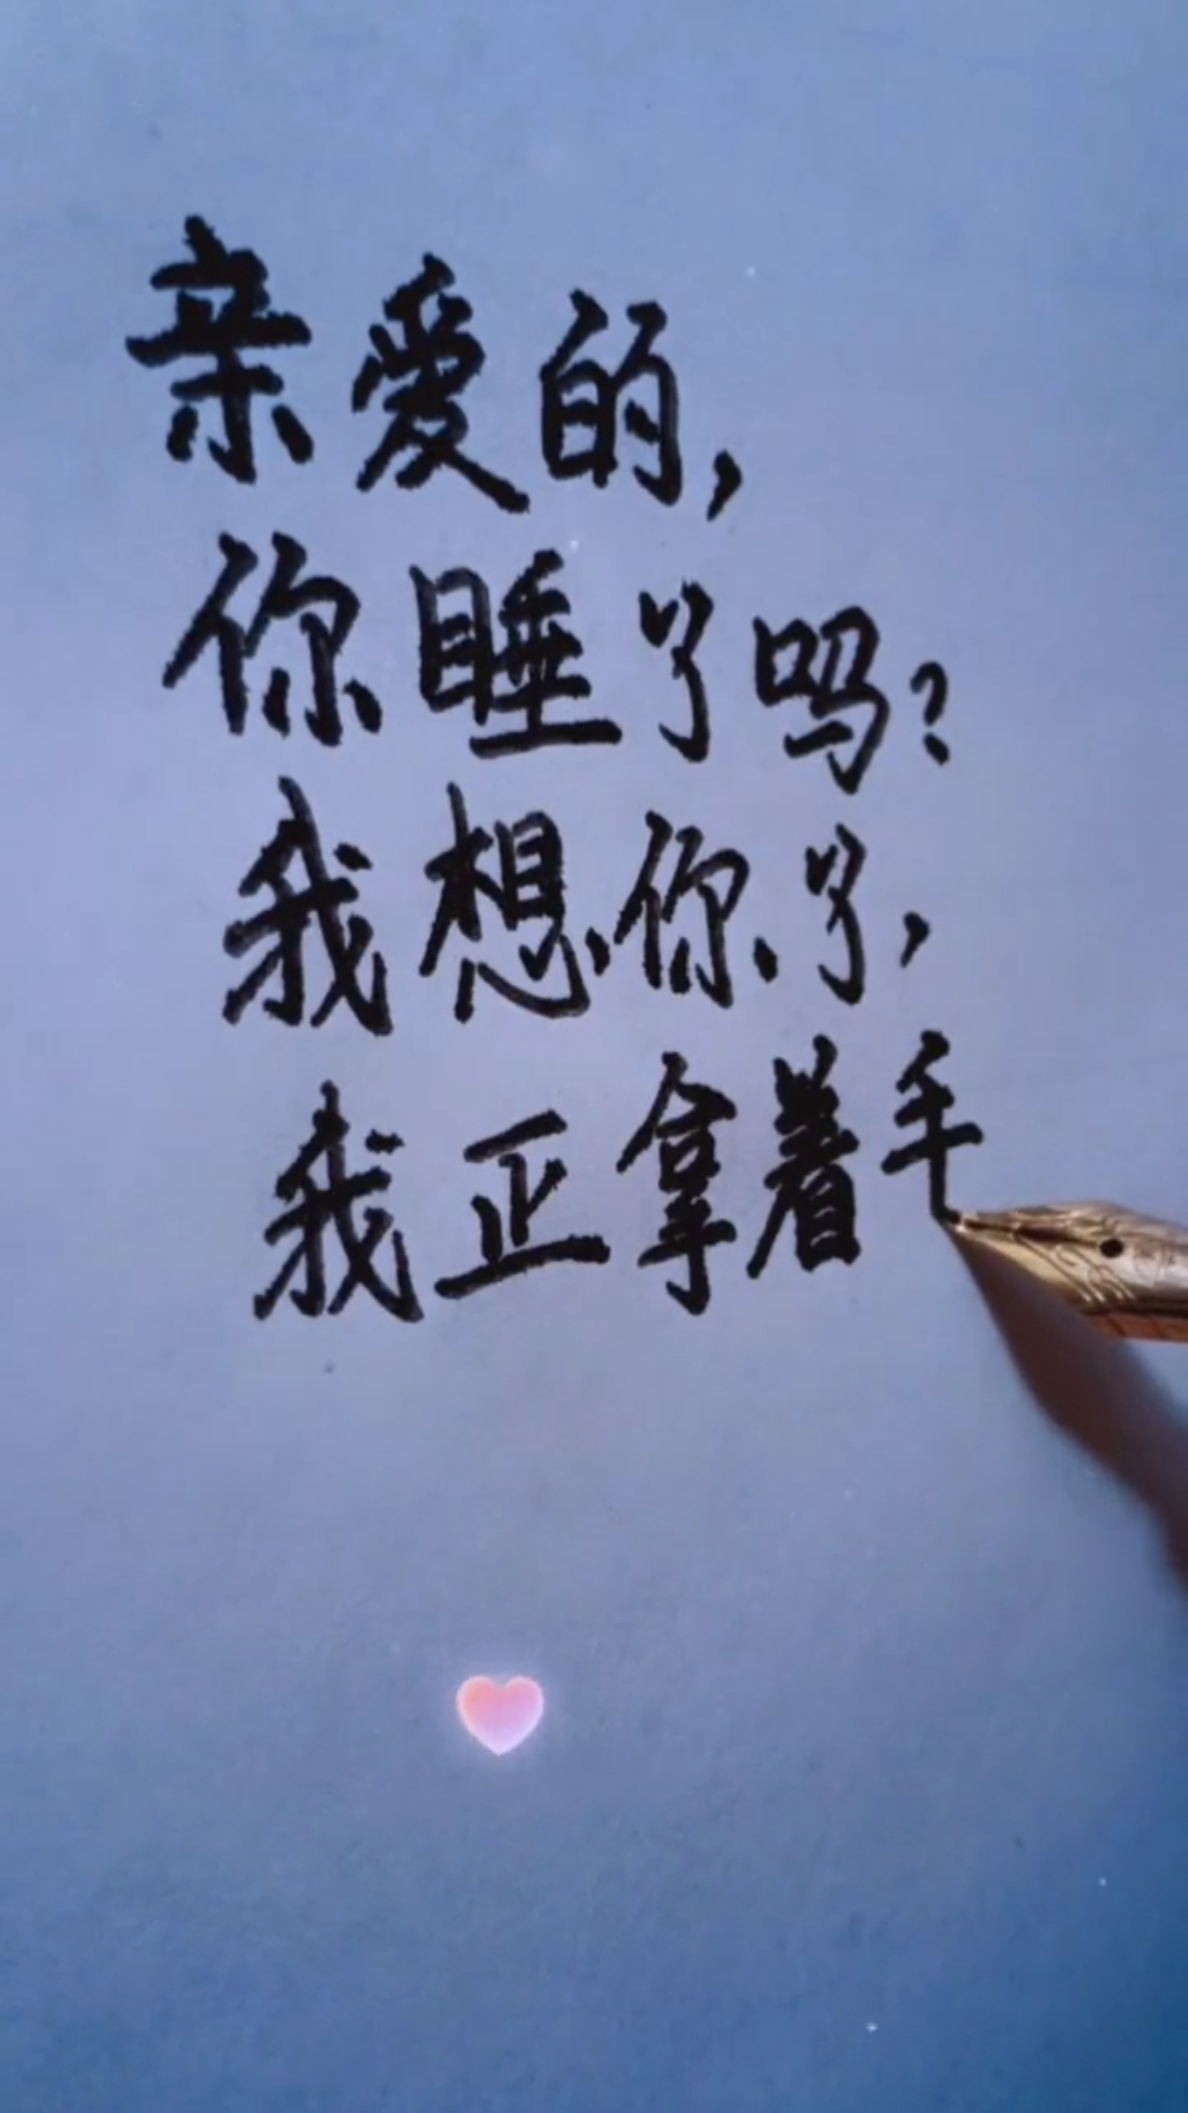 亲爱的,
你睡了吗?
我想你了,
我正拿着手